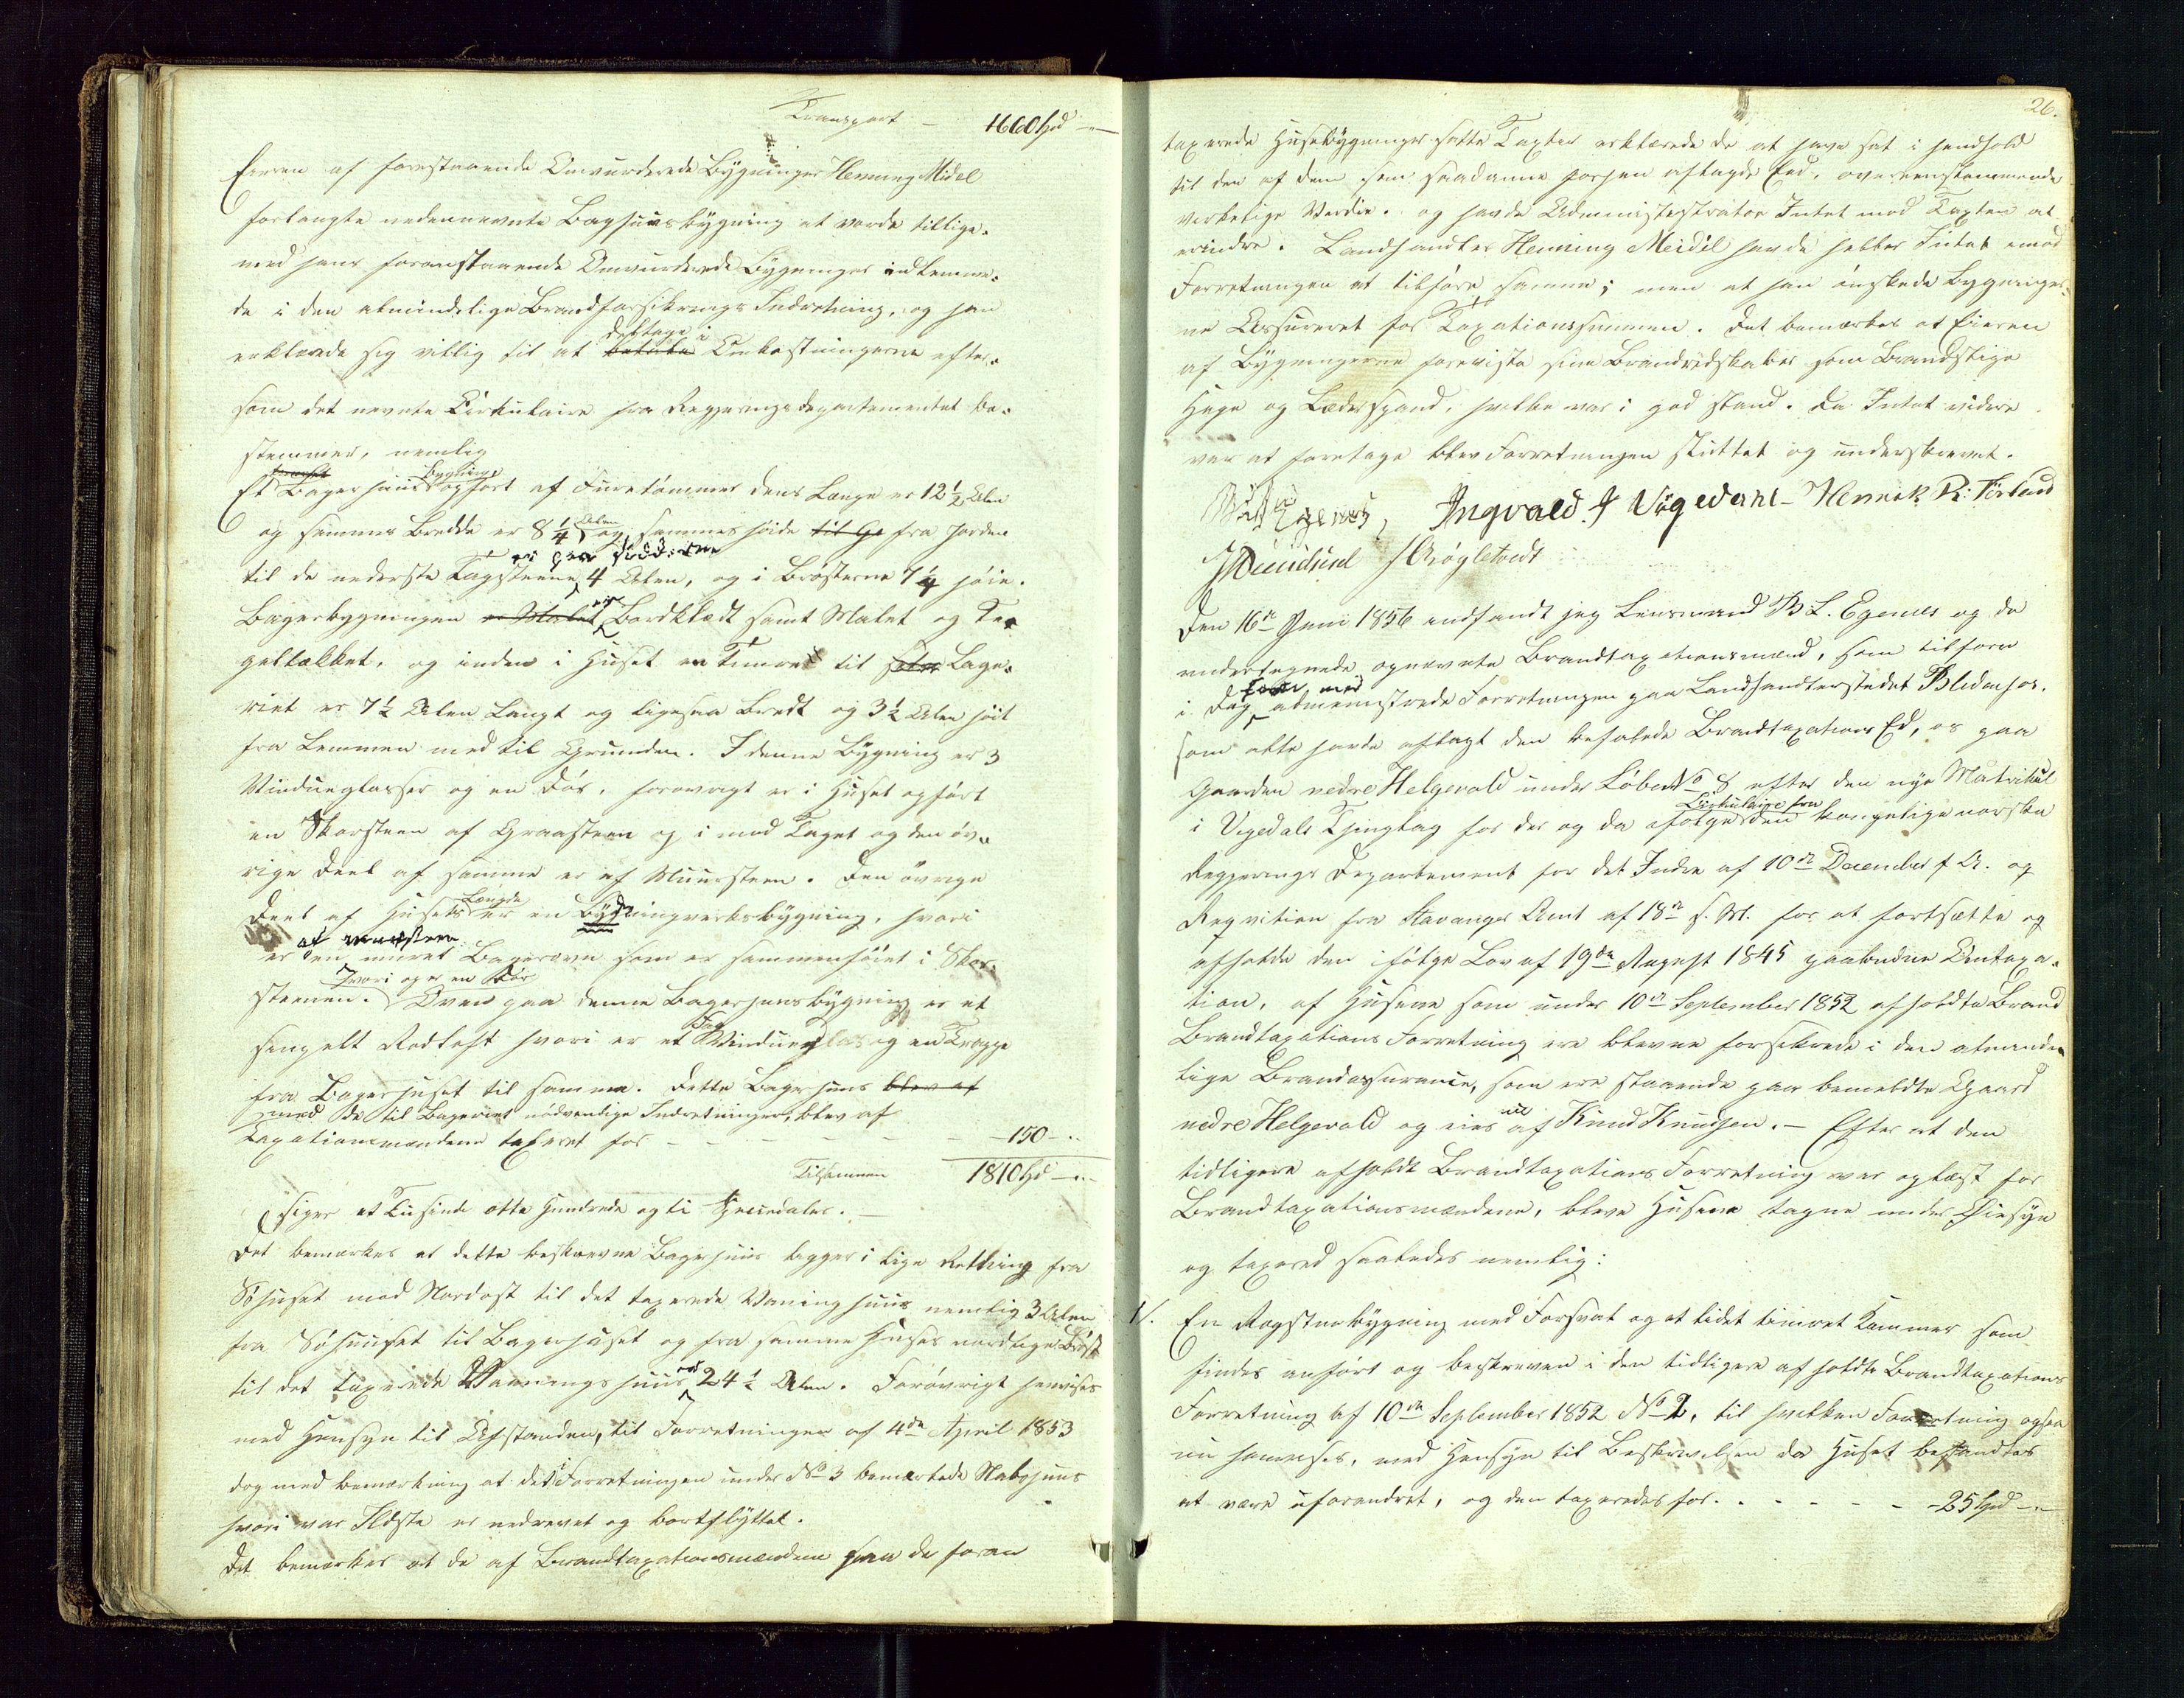 Transport – 1660 Spd – "–
Eieren af forestaaende Omvurderede Bygninger Henning Midel
forlangte nedennevnte Baghuusbygning at vorde tillige-
med hans foranstaaende Omvurderede Bygninger indlemme-
de i den almindelige Brandforsikrings Indretning, og han
erklærede sig villig til at betale deeltage i Omkostningerne efter-
som det nevnte Cirkulaire fra Regjeringsdepartementet be-
stemmer, nemlig
Et Bagerhuus bygning opført af Furetømmer dens Længe er 12½ Alen
og sammes Bredde er 8¼ Alen og sammes høide til Ge fra Jorden
til de nederste Tagsteene er paa siderne 4 Alen, og i Brøsterne 7¼ høie.
Bagerbygningen er Malet er Bordklædt samt Malet og Te-
geltækket, og inden i Huset en Tømret til Bage-
riet er 7½ Alen Langt og ligesaa Bredt og 3½ Alen høit
fra Lemmen ned til Grunden. I denne Bygning er 3
Vinduer glasser og en Dør, forøvrigt er i Huset opført
en Skorsteen af Graasteen op i mod Taget og den øv-
rige Deel af samme er af Muursteen. Den øvrige
Deel af Husets Længde er en Bygningverksbygning, hvori
er en muret af muursteen Bagerovn som er sammenføiet i Skor-
steenen. hvori og er en Dør Oven paa denne Bagerhuusbygning er et
simpelt Rodloft hvori er et Fag Vindueglas og en Trappe
fra Bagerhuset til samme. Dette Bagerhuus blev af
med de til Bageriet nødvendige Indretninger, blev af
Taxationsmændene taxeret for – – – – – 150 – "
Tilsammen 1810 Spd – "–
siger et Tusinde otte Hundrede og ti Speciedaler. –
Det bemærkes at dette beskrevne Bagerhuus ligger i lige Retning fra
Søhuset mod Nordost til det taxerede Vaaninghuus nemlig 3 Alen
fra Søhuuset til Bagerhuset og fra samme Huses nordlige Brøst
til det taxerede Vaaningshuus er 24½ Alen. Forøvrigt henvises
med Hensyn til Afstanden, til Forretninger af 4de April 1853
dog med bemærkning at det i Forretningen under No 3 bemærkede Nabohuus
hvori var Ildsted er nedrevet og bortflyttet.
Det bemærkes at de af Brandtaxationsmændene paa de foran
26.
taxerede Husebygninger satte Taxter erklærede de at have sat i henhold
til den af dem som saadanne forhen aflagde Eed, overeensstemmende
virkelige Værdie. og havde Administrator Intet mod Taxten at
erindre. Landhandler Henning Meidel havde heller Intet imod
Forretningen at tilføre samme; men at han ønskede Bygninger-
ne Assureret for Taxationssummen. Det bemærkes at Eieren
af Bygningerne foreviste sine Brandredskaber som Brandstige
Hage og Læderspand, hvilke var i god stand. Da Intet videre
var at foretage blev Forretningen sluttet og underskrevet.
Egenæs, Ingvald J Vigedahl – Henrik R: Førland
J Skogletvedt
Den 16de Juni 1856 indfandt jeg Lensmand B L. Egenæs og de
undertegnede opnævnte Brandtaxationsmænd, som tilforn
i Dag har med administrede Forretningen paa Landhandlerstedet Blidensol,
som alle havde aflagt den befalede Brandtaxations Ed, os paa
Gaarden nedre Helgevold under Løbe No 8 efter den nye Matrikul
i Vigedals Thinglag for der og da ifølge Cirkulaire fra den kongelige norske
Regjerings Departement for det Indre af 10de December f A. og
Reqvition fra Stavanger Amt af 18de s. M. for at fortsætte og
afholde den ifølge Lov af 19de August 1845 paabudne Omtaxa-
tion, af Husene som under 10de September 1852 afholdte Brand
Brandtaxations Forretning ere blevne forsikrede i den alminde-
lige Brandassurance, som ere staaende paa bemeldte Gaard
nedre Helgevold og eies nu af Knud Knudsen. – Efter at den
tidligere afholdt Brandtaxations Forretning var oplæst for
Brandtaxationsmændene, bleve Husene tagne under Øiesyn
og taxered saaledes nemlig:
1/. En Røgstuebygning med Forsval og et lidet tømret Kammer som
findes anført og beskreven i den tidligere afholdte Brandtaxations
Forretning af 10de September 1852 No 1, til hvilken Forretning ogsaa
nu henvises, med Hensyn til Beskrivelsen da Huset befandtes
at være uforandret, og den taxeredes for. . – – – – 25 Spd – "–